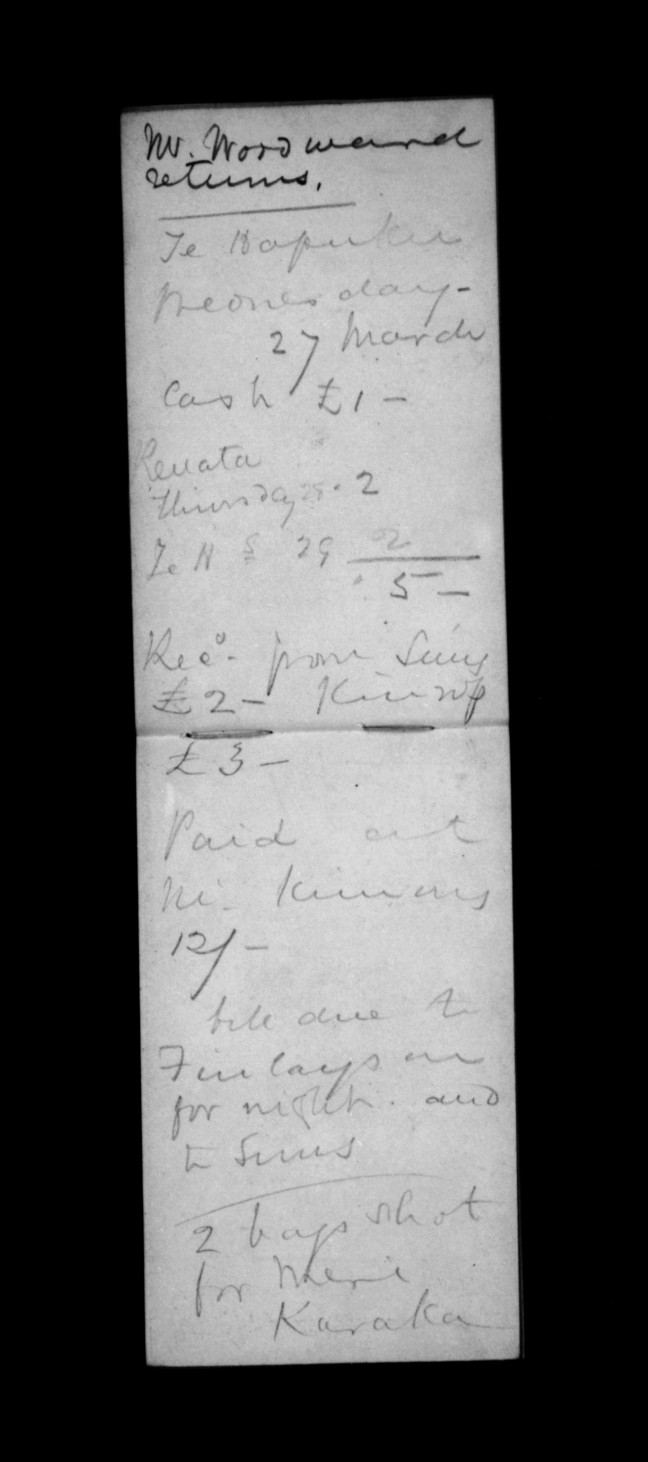 Mr. Woodward
returns.
Te Hapuku
Wednesday -
27 March
Cash £1 -
Renata
Thursday 28 . 2
Te H & 29 2
5 -
Recd. from Sims
£2 -
£3 -
Paid at
12/-
bill due to
Finlayson
for night. and
to Sims
2 bags shot
for Mere
Karaka